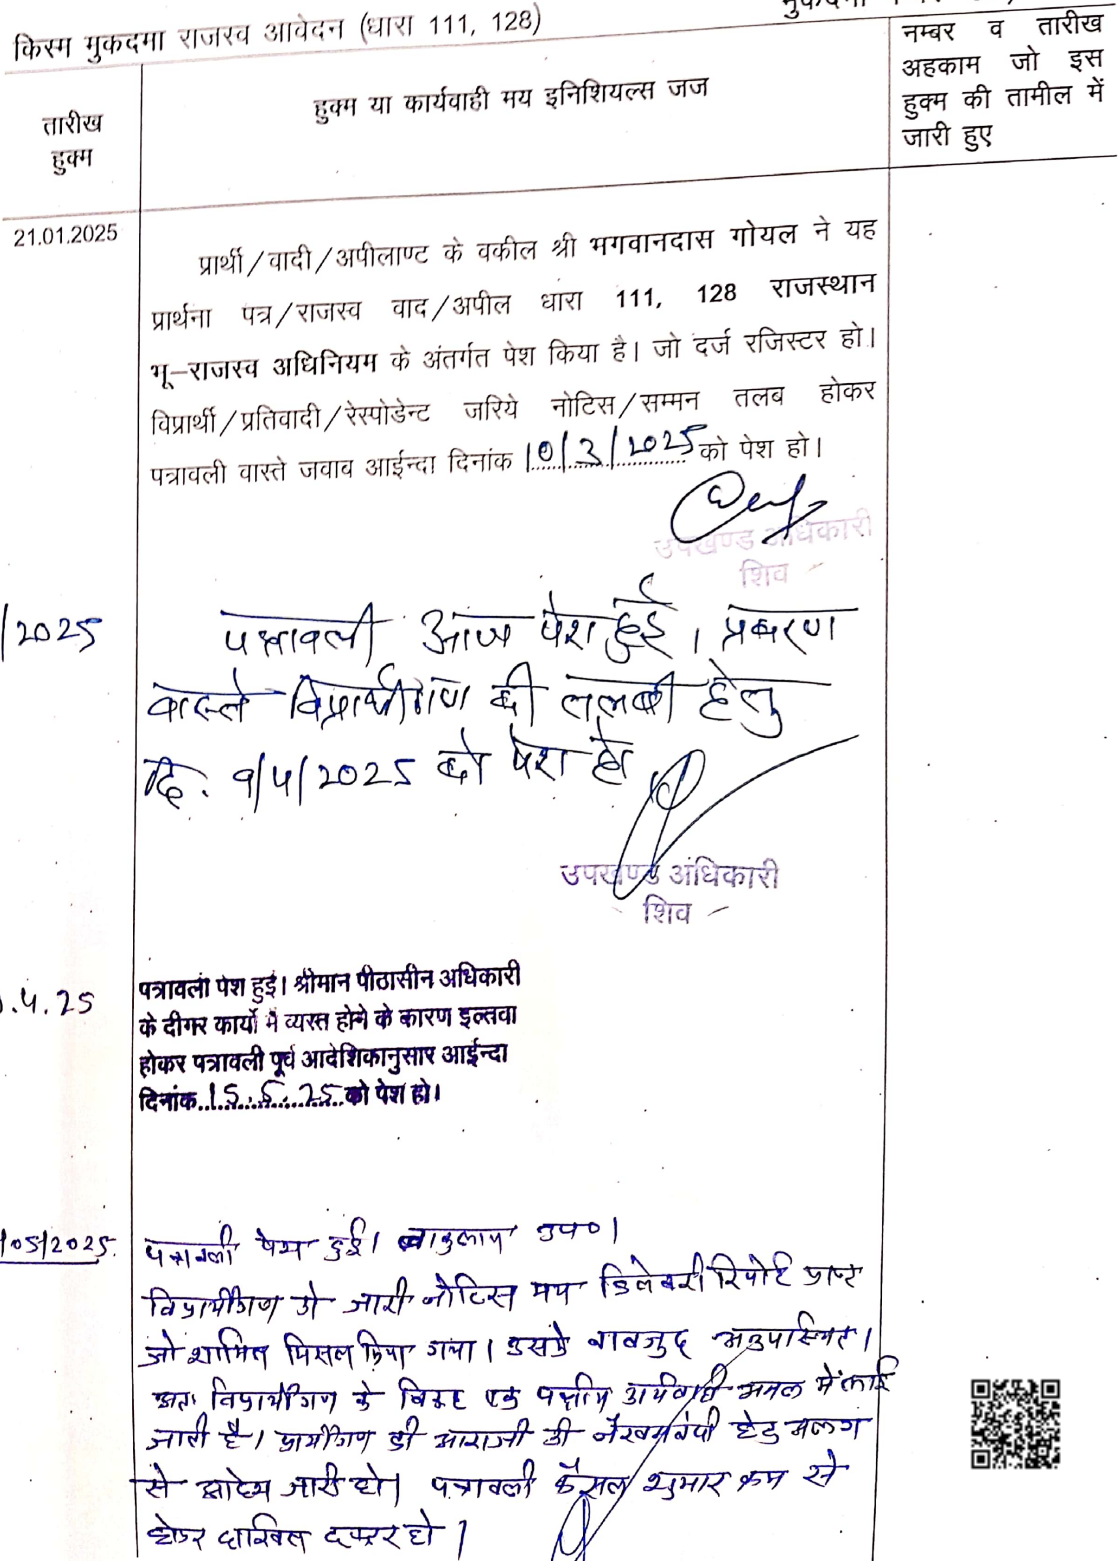 किस्म मुकदमा राजस्व आवेदन (धारा 111, 128)
तारीख
हुक्म
हुक्म या कार्यवाही मय इनिशियल्स जज
नम्बर व तारीख
अहकाम जो इस
हुक्म की तामील में
जारी हुए
21.01.2025
प्रार्थी/वादी/अपीलाण्ट के वकील श्री भगवानदास गोयल ने यह
प्रार्थना पत्र/राजस्व वाद/अपील धारा 111, 128 राजस्थान
भू-राजस्व अधिनियम के अंतर्गत पेश किया है। जो दर्ज रजिस्टर हो।
विप्रार्थी/प्रतिवादी/रेस्पोडेन्ट जरिये नोटिस/सम्मन तलब होकर
पत्रावली वास्ते जवाव आईन्दा दिनांक 10/3/2025 को पेश हो।
उपखण्ड अधिकारी
शिव
/2025
पत्रावली आज पेश हुई। प्रकरण
वास्ते विप्रार्थीगण की तलबी हेतु
दि. 9/4/2025 को पेश हो
उपखण्ड अधिकारी
शिव
.4.25
पत्रावली पेश हुई। श्रीमान पीठासीन अधिकारी
के दीगर कार्यो में व्यस्त होने के कारण इल्तवा
होकर पत्रावली पूर्व आदेशिकानुसार आईन्दा
दिनांक 15.5.25 को पेश हो।
/05/2025
पत्रावली पेश हुई। उप०।
विप्रार्थीगण को जारी नोटिस मय डिलेवरी रिपोर्ट प्राप्त
जो शामिल मिसल किया गया। उसके बावजुद अनुपस्थित।
अतः विप्रार्थीगण के विरूद्ध एक पक्षीय कार्यवाही अमल में लाई
जाती है। प्रार्थीगण की आराजी की हेतु अलग
से आदेश जारी हो। पत्रावली फैसल शुमार क्रम से
होकर दाखिल दफ्तर हो।